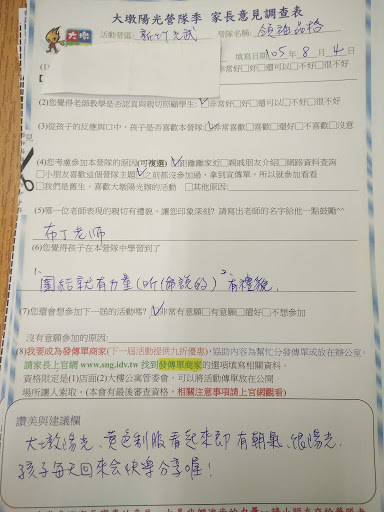 大墩陽光營隊季 家長意見調查表
大墩
活動營區: 新竹光武 營隊名稱: 領袖品格
填寫日期 105 年 8 月 4 日
(1)
非常好□好□還可以□不好□很不好
(2)您覺得老師教學是否認真與親切照顧學生: ☑非常好□好□還可以□不好□很不好
(3)從孩子的反應與口中,孩子是否喜歡本營隊:☑非常喜歡□喜歡□還好□不喜歡□沒意
見
(4)您考慮參加本營隊的原因(可複選) ☑距離離家近□親戚朋友介紹□網路資料查詢
□小朋友喜歡這個營隊主題☑之前都沒參加過,拿到宣傳單,所以就參加看看
□我們是舊生,喜歡大墩陽光辦的活動 □其他原因:
(5)哪一位老師表現的親切有禮貌,讓您印象深刻? 請寫出老師的名字給他一點鼓勵^^
布丁老師
(6)您覺得孩子在本營隊中學習到了
1.團結就有力量(听偷說的) 2.有禮貌.
(7)您還會想參加下一屆的活動嗎? ☑非常有意願□有意願□還好□不想參加
沒有意願參加的原因:
(8)我要成為發傳單商家(下一屆活動提供九折優惠),協助內容為幫忙分發傳單或放在辦公室。
請家長上官網 www.sng.idv.tw 找到發傳單商家的選項填寫相關資料。
資格限定是(1)店面(2)大樓公寓管委會,可以將活動傳單放在公開
場所讓人索取。(本會有最後審查資格,相關注意事項請上官網觀看)
讚美與建議欄
大墩陽光、黃色制服看起來即有朝氣、很陽光.
孩子每天回來会快樂分享喔!